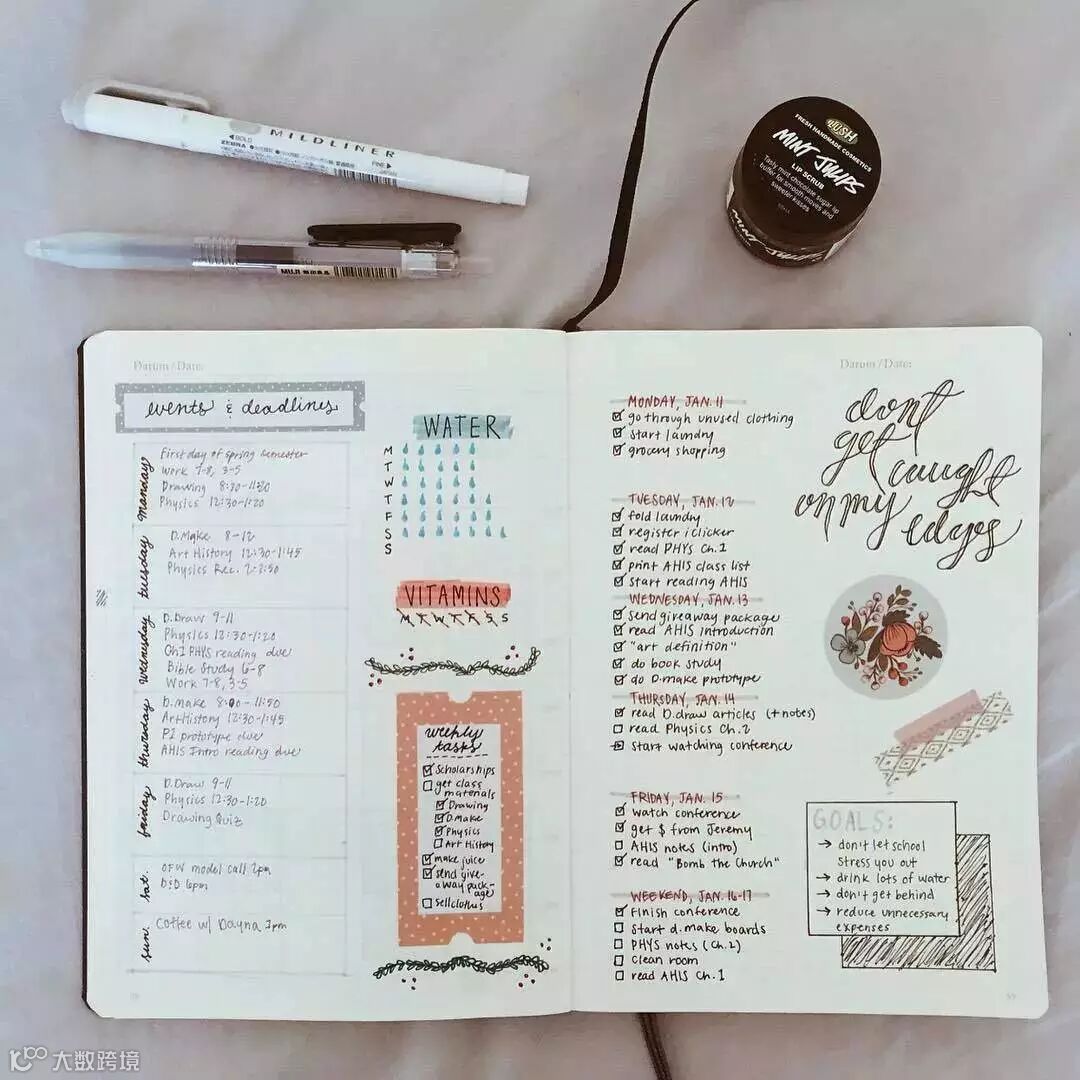 MILDLINER
BOLD
ZEBRA
FINE
JAPAN
MUJI 無印良品
LUSH
FRESH HANDMADE COSMETICS
MINT JULIPS
LIP SCRUB
Tasty mint chocolate sugar lip
buffer for smooth moves and
sweeter kisses
MINT JULIPS
Datum / Date:
events & deadlines
monday
First day of spring semester
Work 7-8, 3-5
Drawing 8:30-11:20
Physics 12:30-1:20
tuesday
D.Make 8-12
Art History 12:30-1:45
Physics Rec. 2-2:50
wednesday
D.Draw 9-11
Physics 12:30-1:20
Ch1 PHYS reading due
Bible Study 6-8
Work 7-8, 3-5
thursday
D.make 8:00-11:50
ArtHistory 12:30-1:45
P1 prototype due
AHIS Intro reading due
friday
D.Draw 9-11
Physics 12:30-1:20
Drawing Quiz
sat.
OFW model call 2pm
D&D 6pm
sun.
Coffee w/ Dayna 3pm
WATER
M
T
W
T
F
S
S
VITAMINS
M T W T F S S
weekly
tasks
Scholarships
get class
materials
Drawing
D.Make
Physics
Art History
make juice
send give-
away pack-
age
sell clothes
Datum / Date:
MONDAY, JAN. 11
go through unused clothing
start laundry
grocery shopping
TUESDAY, JAN. 12
fold laundry
register iclicker
read PHYS Ch.1
print AHIS class list
start reading AHIS
WEDNESDAY, JAN. 13
send giveaway package
read AHIS introduction
"art definition"
do book study
do D.make prototype
THURSDAY, JAN. 14
read D.draw articles (+notes)
read Physics Ch.2
start watching conference
FRIDAY, JAN. 15
watch conference
get $ from Jeremy
AHIS notes (intro)
read "Bomb the Church"
WEEKEND, JAN. 16-17
finish conference
start d.make boards
PHYS notes (Ch.2)
clean room
read AHIS Ch.1
dont
get caught
on my edges
GOALS:
→ don't let school
stress you out
→ drink lots of water
→ don't get behind
→ reduce unnecessary
expenses
大数跨境